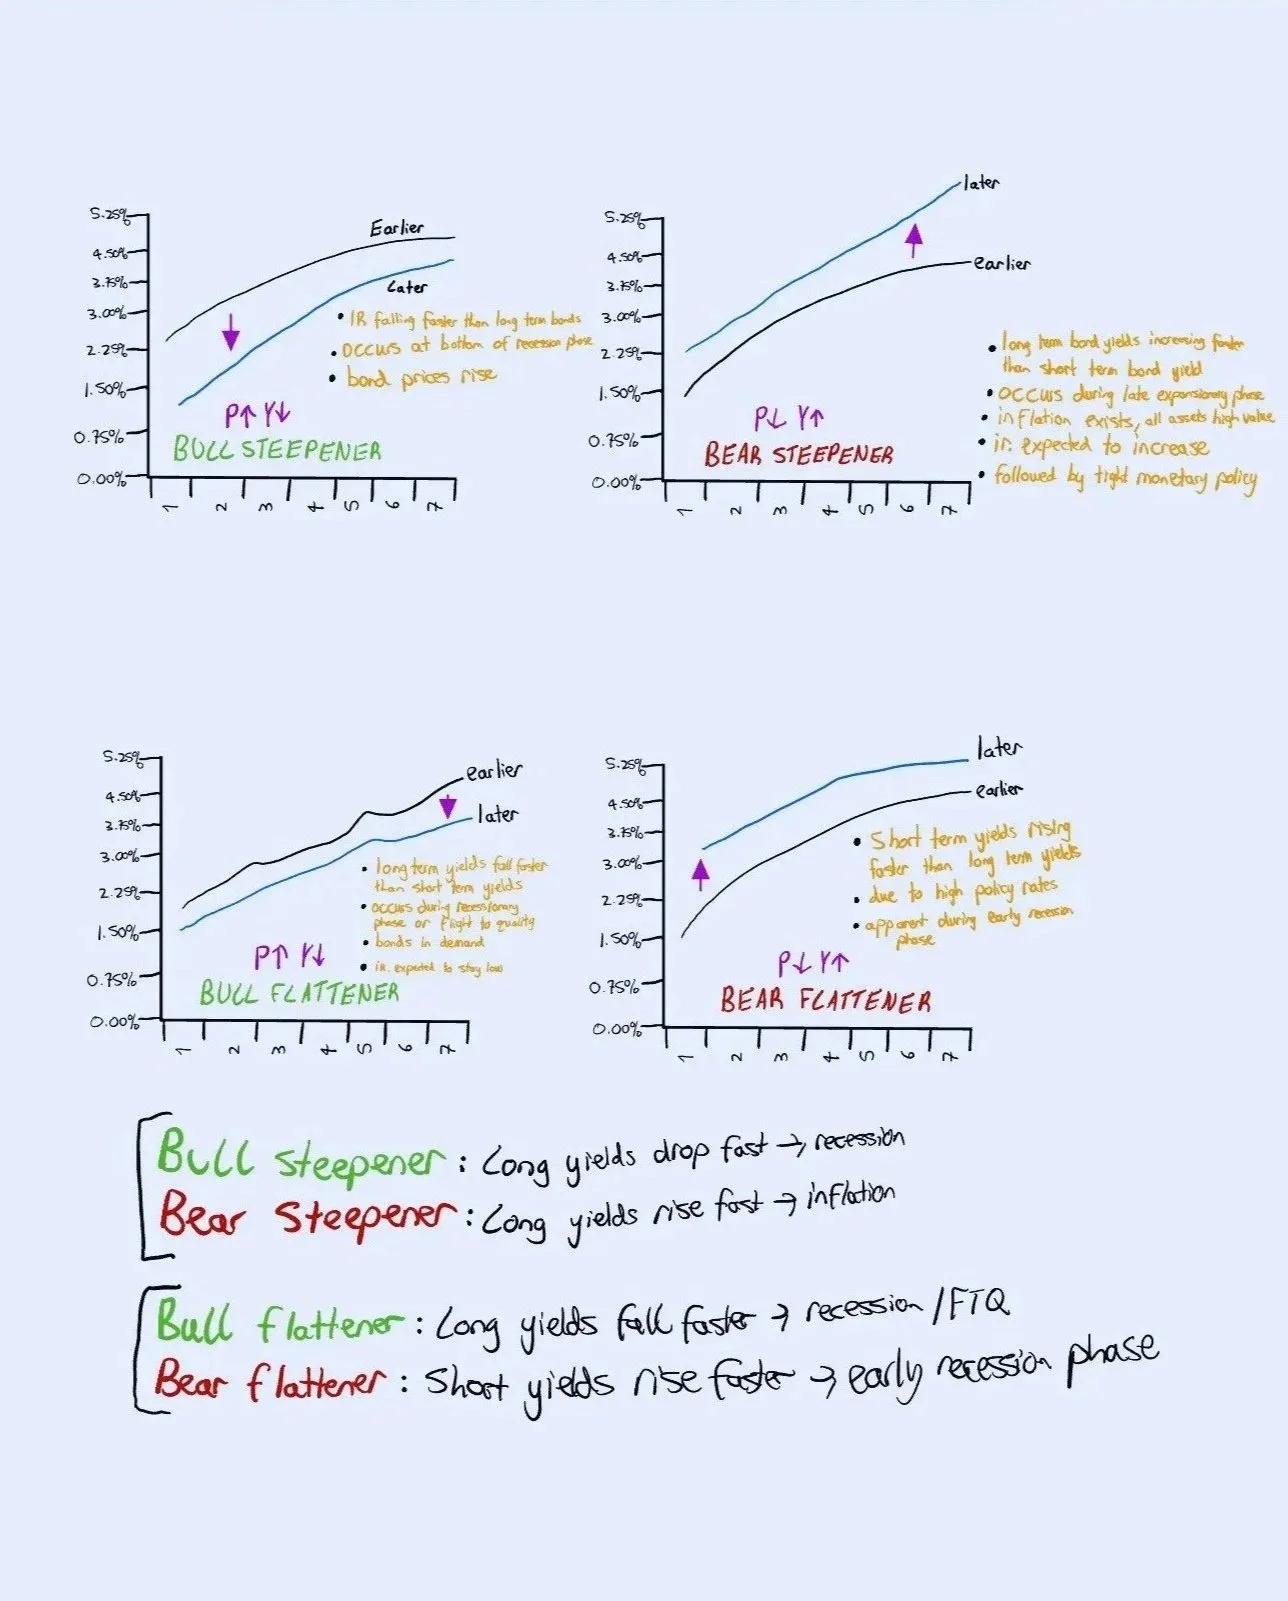 5.25%
4.50%
3.75%
3.00%
2.25%
1.50%
0.75%
0.00%
Earlier
Later
• IR falling faster than long term bonds
• OCCURS at bottom of recession phase
• bond prices rise
P↑ Y↓
BULL STEEPENER
1 2 3 4 5 6 7
5.25%
4.50%
3.75%
3.00%
2.25%
1.50%
0.75%
0.00%
later
earlier
• long term bond yields increasing faster
than short term bond yield
• OCCURS during late expansionary phase
• inflation exists, all assets high value
• ir. expected to increase
• followed by tight monetary policy
P↓ Y↑
BEAR STEEPENER
1 2 3 4 5 6 7
5.25%
4.50%
3.75%
3.00%
2.25%
1.50%
0.75%
0.00%
earlier
later
• long term yields fall faster
than short term yields
• occurs during recessionary
phase or flight to quality
• bonds in demand
• i.r. expected to stay low
P↑ Y↓
BULL FLATTENER
1 2 3 4 5 6 7
5.25%
4.50%
3.75%
3.00%
2.25%
1.50%
0.75%
0.00%
later
earlier
• Short term yields rising
faster than long term yields
• due to high policy rates
• apparent during early recession
phase
P↓ Y↑
BEAR FLATTENER
1 2 3 4 5 6 7
Bull steepener : Long yields drop fast → recession
Bear Steepener : Long yields rise fast → inflation
Bull flattener : Long yields fall faster → recession / FTQ
Bear flattener : Short yields rise faster → early recession phase